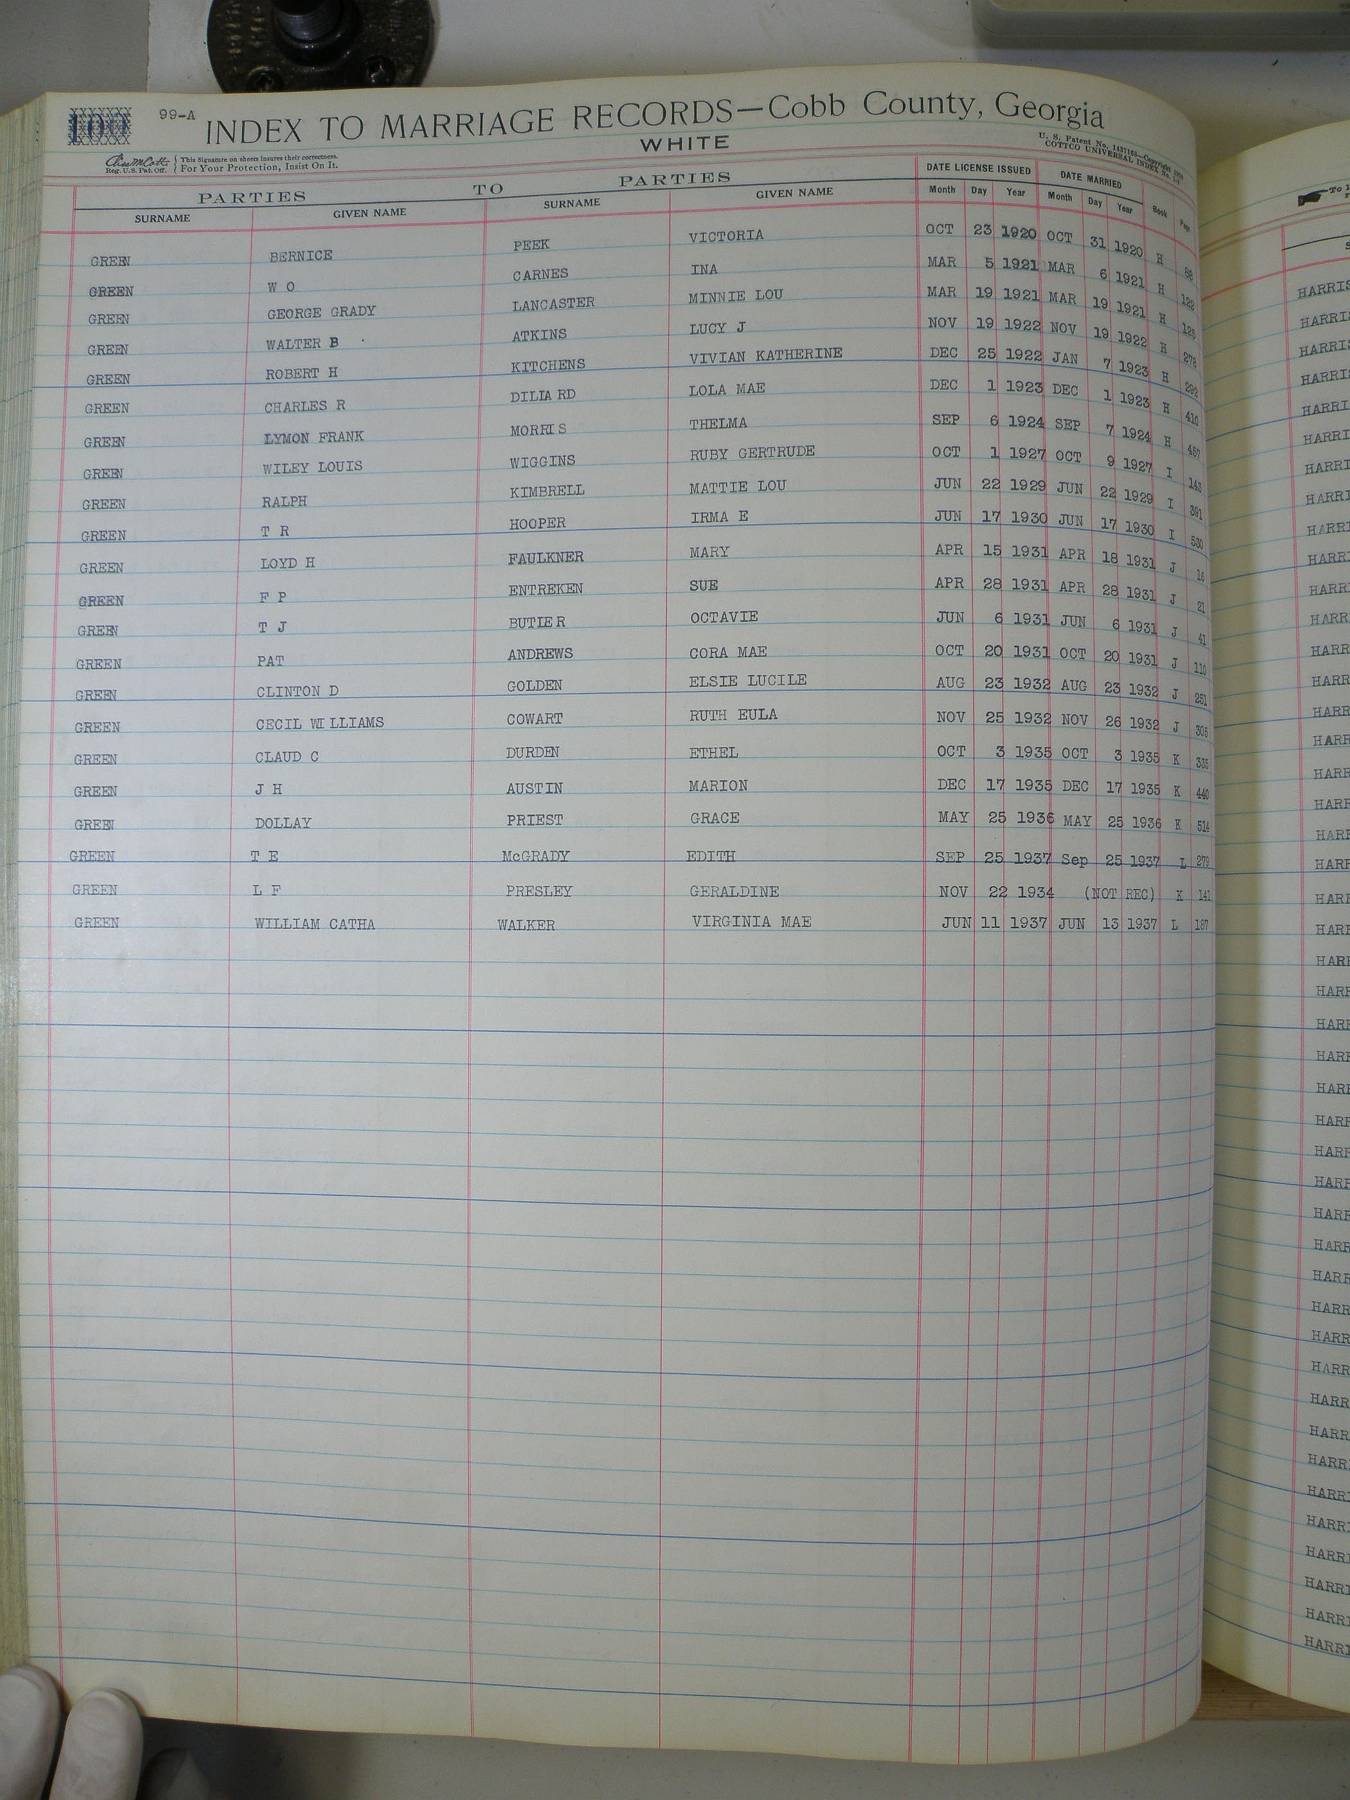 99-A INDEX TO MARRIAGE RECORDS—Cobb County, Georgia
WHITE
Reg. U.S. Pat. Off. This Signature on sheets insures their correctness.
For Your Protection, Insist On It.
U. S. Patent No.
COTTCO UNIVERSAL INDEX
PARTIES TO PARTIES DATE LICENSE ISSUED DATE MARRIED
SURNAME GIVEN NAME SURNAME GIVEN NAME Month Day Year Month Day Year Book Page
GREEN BERNICE PEEK VICTORIA OCT 23 1920 OCT 31 1920 H
GREEN W O CARNES INA MAR 5 1921 MAR 6 1921 H 122
GREEN GEORGE GRADY LANCASTER MINNIE LOU MAR 19 1921 MAR 19 1921 H
GREEN WALTER B ATKINS LUCY J NOV 19 1922 NOV 19 1922 H 278
GREEN ROBERT H KITCHENS VIVIAN KATHERINE DEC 25 1922 JAN 7 1923 H 292
GREEN CHARLES R DILLARD LOLA MAE DEC 1 1923 DEC 1 1923 H 410
GREEN LYMON FRANK MORRIS THELMA SEP 6 1924 SEP 7 1924 H 487
GREEN WILEY LOUIS WIGGINS RUBY GERTRUDE OCT 1 1927 OCT 9 1927 I
GREEN RALPH KIMBRELL MATTIE LOU JUN 22 1929 JUN 22 1929 I 391
GREEN T R HOOPER IRMA E JUN 17 1930 JUN 17 1930 I 530
GREEN LOYD H FAULKNER MARY APR 15 1931 APR 18 1931 J 16
GREEN F P ENTREKEN SUE APR 28 1931 APR 28 1931 J 21
GREEN T J BUTLER OCTAVIE JUN 6 1931 JUN 6 1931 J 41
GREEN PAT ANDREWS CORA MAE OCT 20 1931 OCT 20 1931 J 110
GREEN CLINTON D GOLDEN ELSIE LUCILE AUG 23 1932 AUG 23 1932 J 251
GREEN CECIL WILLIAMS COWART RUTH EULA NOV 25 1932 NOV 26 1932 J 305
GREEN CLAUD C DURDEN ETHEL OCT 3 1935 OCT 3 1935 K 335
GREEN J H AUSTIN MARION DEC 17 1935 DEC 17 1935 K 440
GREEN DOLLAY PRIEST GRACE MAY 25 1936 MAY 25 1936 K 514
GREEN T E McGRADY EDITH SEP 25 1937 Sep 25 1937 L 279
GREEN L F PRESLEY GERALDINE NOV 22 1934 (NOT REC) K 141
GREEN WILLIAM CATHA WALKER VIRGINIA MAE JUN 11 1937 JUN 13 1937 L 187